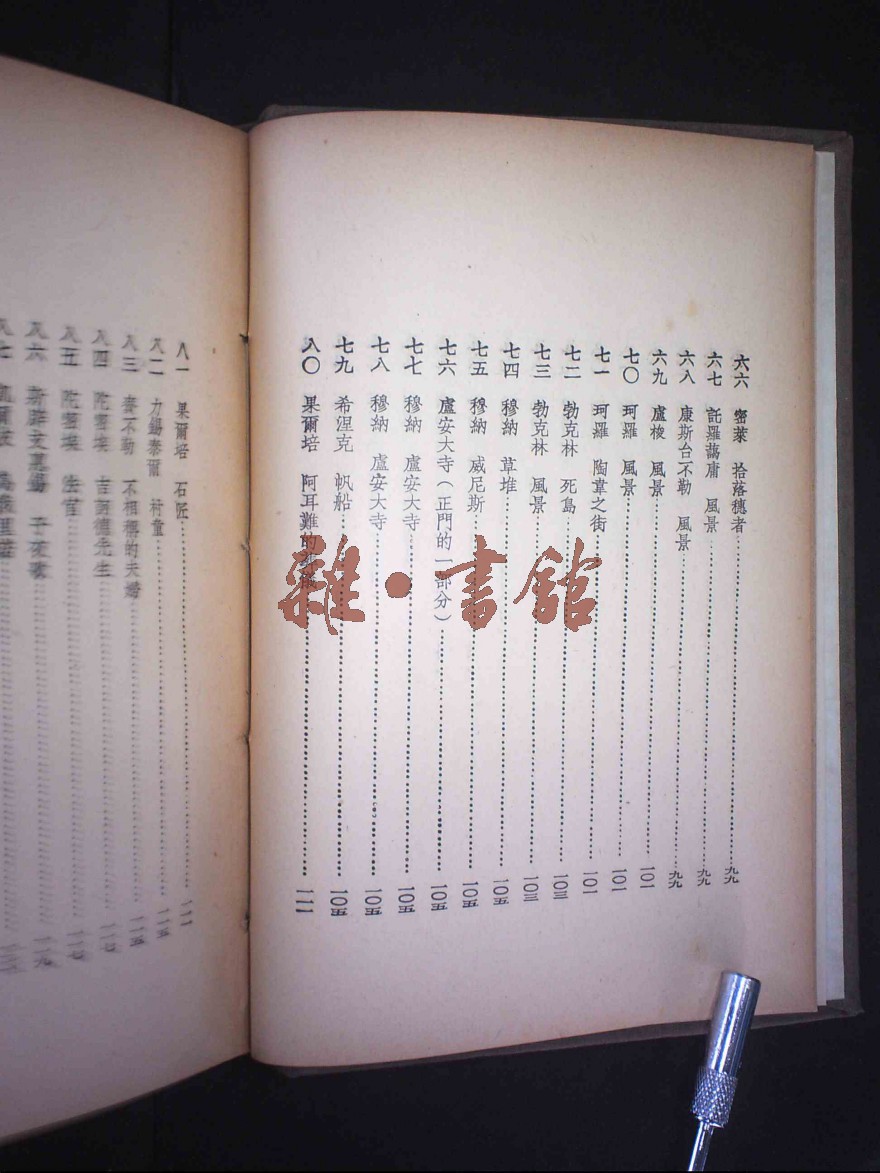 六六 密萊 拾落穗者……九九
六七 託羅藹庸 風景……九九
六八 康斯台不勒 風景……九九
六九 盧梭 風景……一〇一
七〇 珂羅 風景……一〇一
七一 珂羅 陶韋之街……一〇一
七二 勃克林 死島……一〇三
七三 勃克林 風景……一〇三
七四 穆納 草堆……一〇五
七五 穆納 威尼斯……一〇五
七六 盧安大寺(正門的一部分)……一〇五
七七 穆納 盧安大寺……一〇五
七八 穆納 盧安大寺……一〇五
七九 希涅克 帆船……一〇五
八〇 果爾培 阿耳難的……一一一
八一 果爾培 石匠……一一一
八二 力錫泰爾 村童……一一五
八三 不勒 不相稱的夫婦……一一五
八四 陀密埃 吉訶德先生……一一七
八五 陀密埃 法官……一一七
八六 斯……一一九
八七
雜·書館